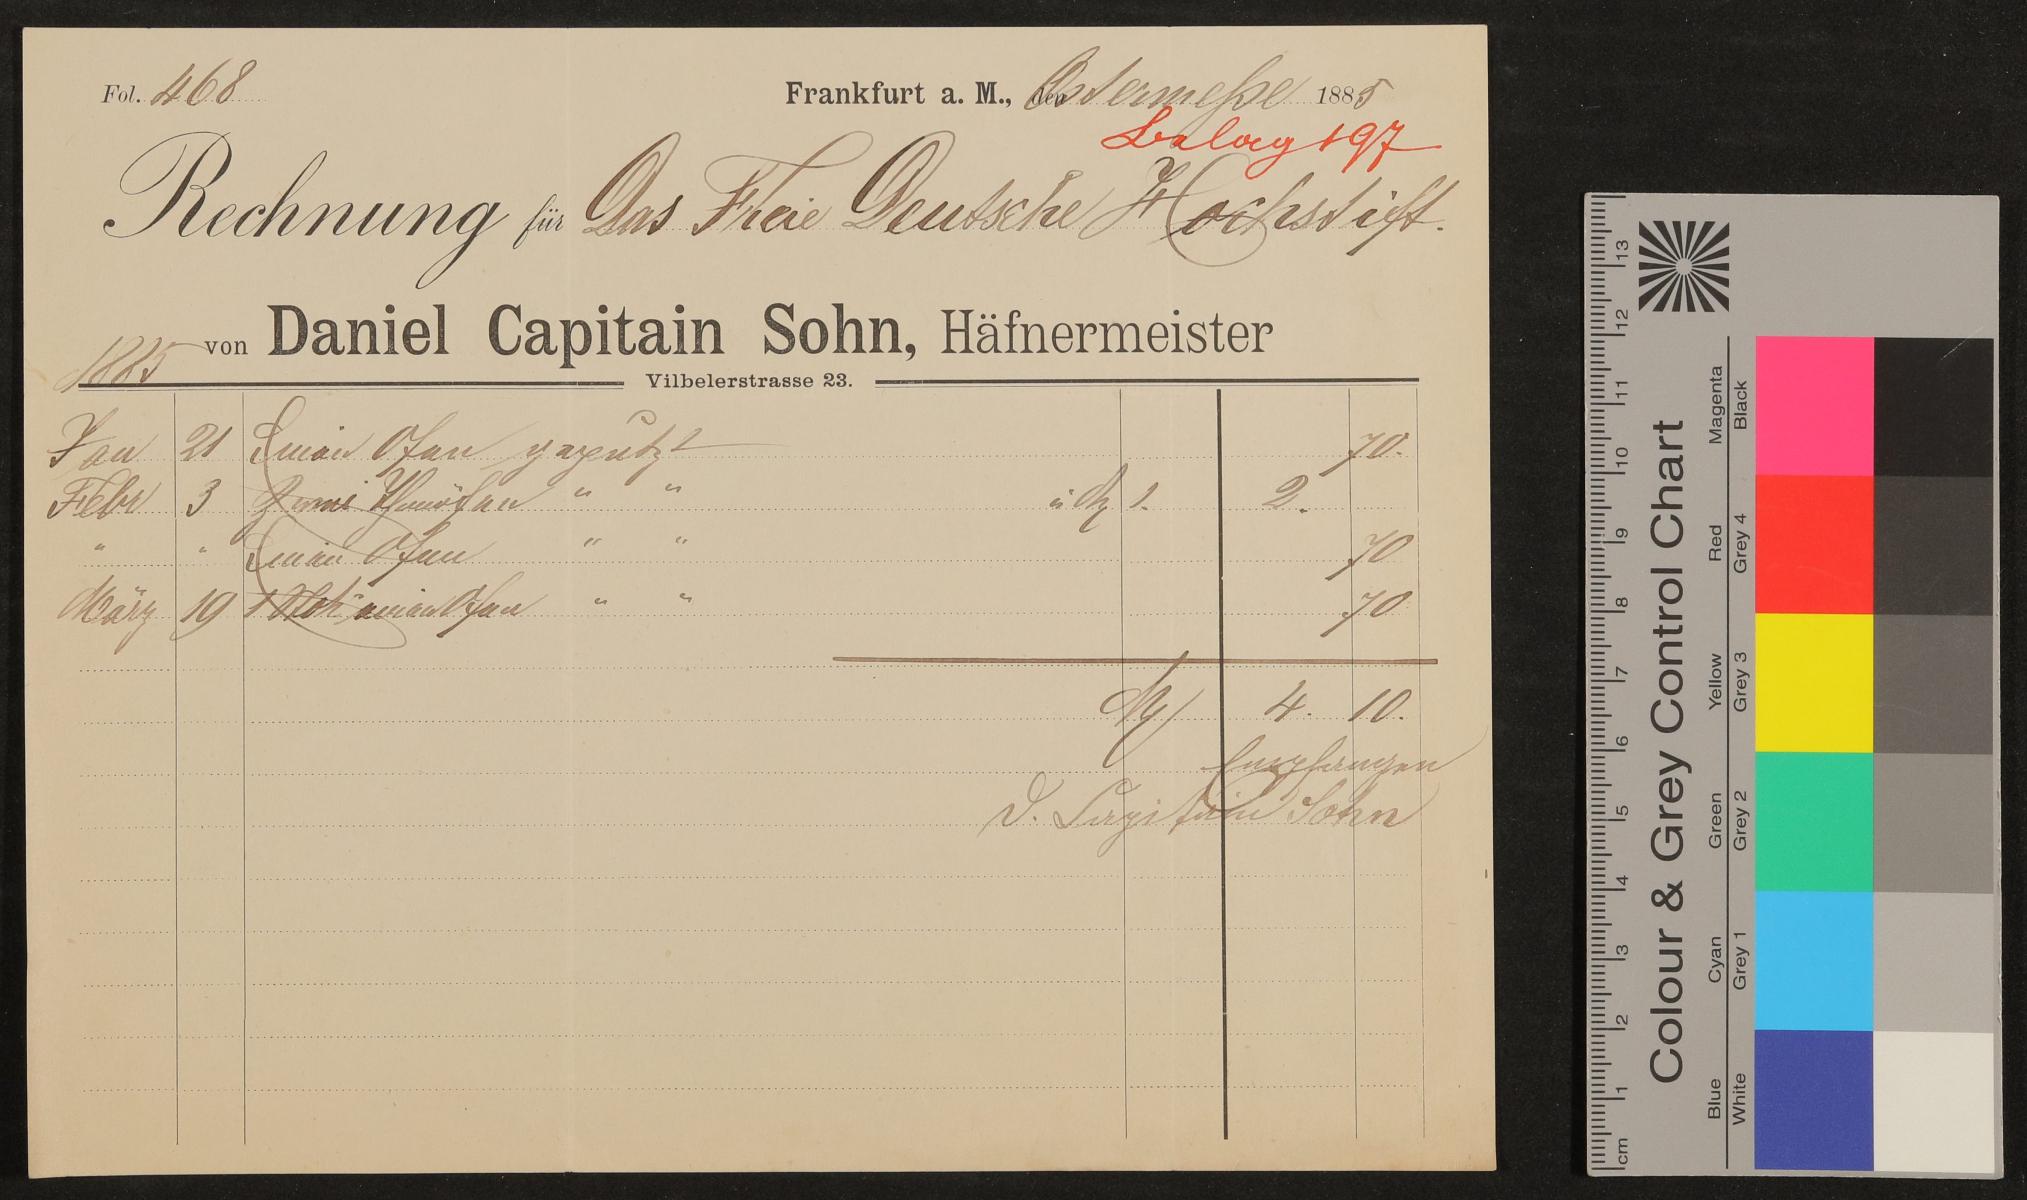 Fol. 468
Frankfurt a. M., den Ostermeße 1885
Beleg 197
Rechnung für Das Freie Deutsche Hochstift.
von Daniel Capitain Sohn, Häfnermeister
1885
Vilbelerstrasse 23.
Jan 21 Einen Ofen geputzt 70.
Febr 3 Zwei Ofen " " à M 1. 2.
" " Einen Ofen " " 70
März 19 Ofen " " 70
M 4. 10.
Empfangen
D. Capitain Sohn
Colour & Grey Control Chart
Blue Cyan Green Yellow Red Magenta
White Grey 1 Grey 2 Grey 3 Grey 4 Black
cm 1 2 3 4 5 6 7 8 9 10 11 12 13